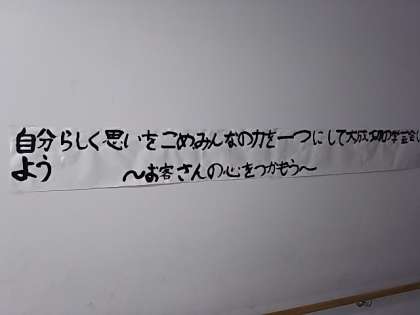 自分らしく思いをこめみんなの力を一つにして大成功の学芸会し
よう
～お客さんの心をつかもう～